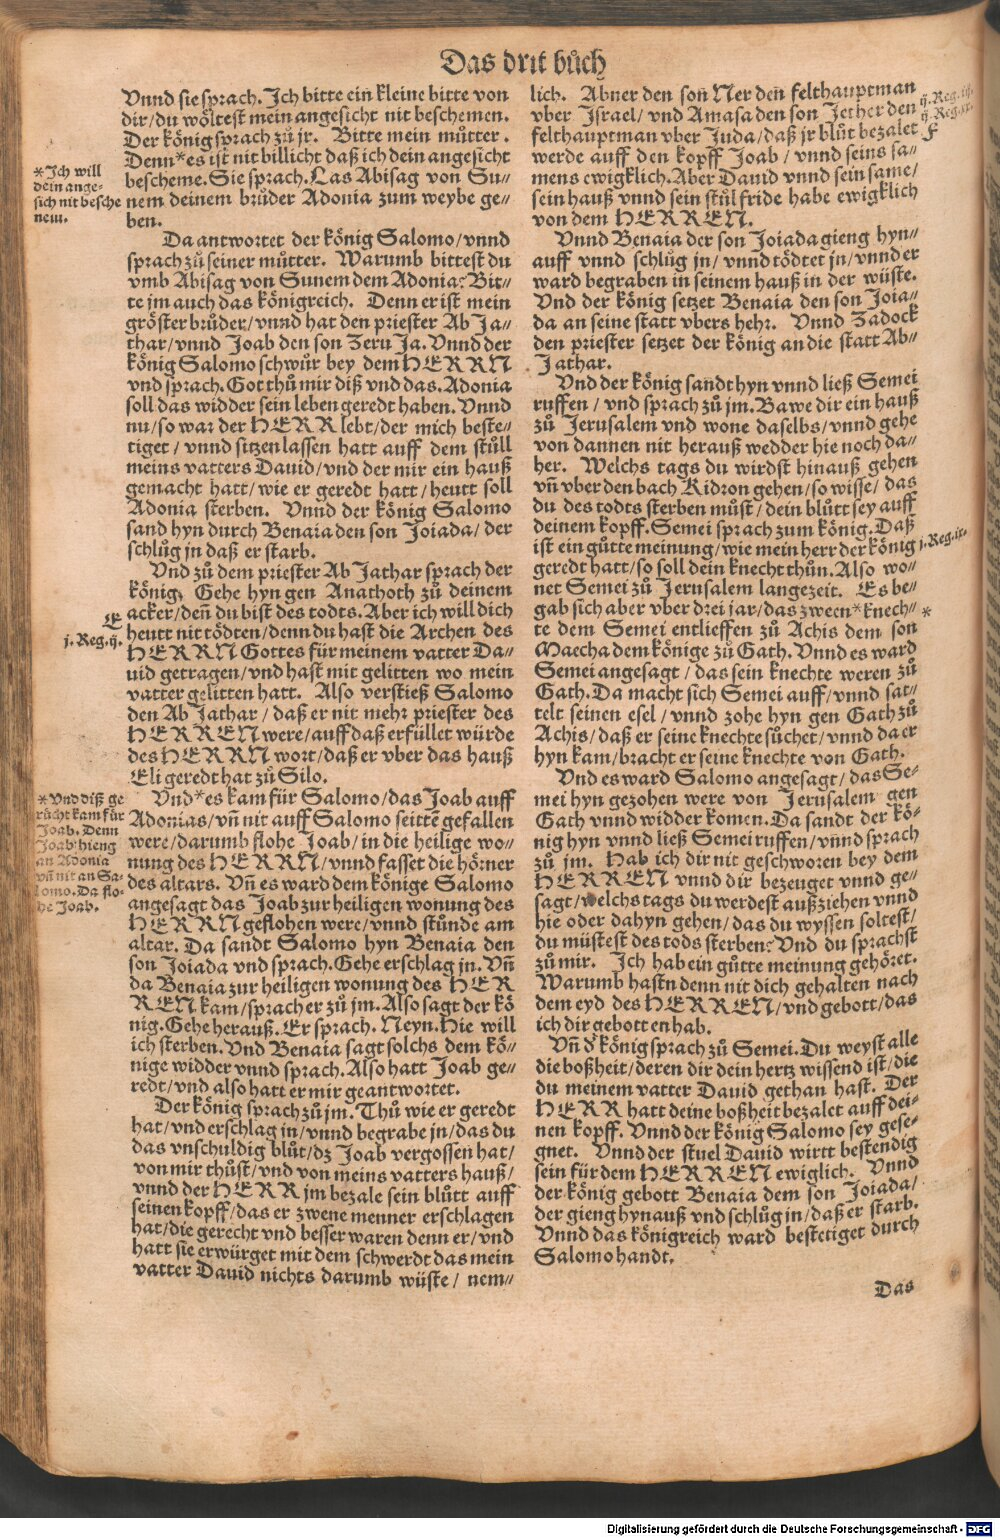 Das drit bůch
Vnnd sie sprach. Ich bitte ein kleine bitte von
dir/du wöltest mein angesicht nit beschemen.
Der könig sprach zů jr. Bitte mein můtter.
Denn*es ist nit billicht daß ich dein angesicht
bescheme. Sie sprach. Las Abisag von Su-
nem deinem brůder Adonia zum weybe ge-
ben.
*Ich will
dein ange-
sich nit besche
nem.
Da antwortet der könig Salomo/vnnd
sprach zů seiner můtter. Warumb bittest du
vmb Abisag von Sunem dem Adonia? Bit-
te jm auch das königreich. Denn er ist mein
gröster brůder/vnnd hat den priester Ab Ja-
thar/vnnd Joab den son Zeru Ja. Vnnd der
könig Salomo schwůr bey dem HERRN
vnd sprach. Got thů mir diß vnd das. Adonia
soll das widder sein leben geredt haben. Vnnd
nu/so war der HERR lebt/der mich beste-
tiget/vnnd sitzen lassen hatt auff dem stůll
meins vatters Dauid/vnd der mir ein hauß
gemacht hatt/wie er geredt hatt/heutt soll
Adonia sterben. Vnnd der könig Salomo
sand hyn durch Benaia den son Joiada/der
schlůg jn daß er starb.
Vnd zů dem priester Ab Jathar sprach der
könig. Gehe hyn gen Anathoth zů deinem
acker/deñ du bist des todts. Aber ich will dich
heutt nit tödten/denn du hast die Archen des
HERRN Gottes für meinem vatter Da-
uid getragen/vnd hast mit gelitten wo mein
vatter gelitten hatt. Also verstieß Salomo
den Ab Jathar/daß er nit mehr priester des
HERREN were/auff daß erfüllet würde
des HERRN wort/daß er vber das hauß
Eli geredt hat zů Silo.
E
j. Reg. ij.
Vnd*es kam für Salomo/das Joab auff
Adonias/vñ nit auff Salomo seittē gefallen
were/darumb flohe Joab/in die heilige wo-
nung des HERRN/vnnd fasset die hörner
des altars. Vñ es ward dem könige Salomo
angesagt das Joab zur heiligen wonung des
HERRN geflohen were/vnnd stünde am
altar. Da sandt Salomo hyn Benaia den
son Joiada vnd sprach. Gehe erschlag jn. Vñ
da Benaia zur heiligen wonung des HER
REN kam/sprach er zů jm. Also sagt der kö
nig. Gehe herauß. Er sprach. Neyn. Hie will
ich sterben. Vnd Benaia sagt solchs dem kö-
nige widder vnnd sprach. Also hatt Joab ge-
redt/vnd also hatt er mir geantwortet.
*Vnd diß ge
rücht kam für
Joab. Denn
Joab hieng
an Adonia
vñ nit an Sa-
lomo. Da flo-
he Joab.
Der könig sprach zů jm. Thů wie er geredt
hat/vnd erschlag jn/vnnd begrabe jn/das du
das vnschuldig blůt/dz Joab vergossen hat/
von mir thůst/vnd von meins vatters hauß/
vnnd der HERR jm bezale sein blůtt auff
seinen kopff/das er zwene menner erschlagen
hat/die gerecht vnd besser waren denn er/vnd
hatt sie erwürget mit dem schwerdt das mein
vatter Dauid nichts darumb wüste/nem-
lich. Abner den son Ner den felthauptman
vber Israel/vnd Amasa den son Jether den
felthauptman vber Juda/daß jr blůt bezalet
werde auff den kopff Joab/vnnd seins sa-
mens ewigklich. Aber Dauid vnnd sein same/
sein hauß vnnd sein stůl fride habe ewigklich
von dem HERREN.
ij. Reg. iij.
ij. Reg. xx.
F
Vnnd Benaia der son Joiada gieng hyn-
auff vnnd schlůg jn/vnnd tödtet jn/vnnd er
ward begraben in seinem hauß in der wüste.
Vnd der könig setzet Benaia den son Joia-
da an seine statt vbers hehr. Vnnd Zadock
den priester setzet der könig an die statt Ab-
Jathar.
Vnd der könig sandt hyn vnnd ließ Semei
ruffen/vnd sprach zů jm. Bawe dir ein hauß
zů Jerusalem vnd wone daselbs/vnnd gehe
von dannen nit herauß wedder hie noch da-
her. Welchs tags du wirdst hinauß gehen
vñ vber den bach Kidron gehen/so wisse/das
du des todts sterben můst/dein blůtt sey auff
deinem kopff. Semei sprach zum könig. Daß
ist ein gůtte meinung/wie mein herr der könig
geredt hatt/so soll dein knecht thůn. Also wo-
net Semei zů Jerusalem langezeit. Es be-
gab sich aber vber drei jar/das zween*knech-
te dem Semei entlieffen zů Achis dem son
Maecha dem könige zů Gath. Vnnd es ward
Semei angesagt/das sein knechte weren zů
Gath. Da macht sich Semei auff/vnnd sat-
telt seinen esel/vnnd zohe hyn gen Gath zů
Achis/daß er seine knechte sůchet/vnnd da er
hyn kam/bracht er seine knechte von Gath.
j. Reg. ix.
*
Vnd es ward Salomo angesagt/das Se-
mei hyn gezohen were von Jerusalem gen
Gath vnnd widder komen. Da sandt der kö-
nig hyn vnnd ließ Semei ruffen/vnnd sprach
zů jm. Hab ich dir nit geschworen bey dem
HERREN vnnd dir bezeuget vnnd ge-
sagt/welchs tags du werdest außziehen vnnd
hie oder dahyn gehen/das du wyssen soltest/
du müstest des tods sterben? Vnd du sprachst
zů mir. Ich hab ein gůtte meinung gehöret.
Warumb hastn denn nit dich gehalten nach
dem eyd des HERREN/vnd gebott/das
ich dir gebotten hab.
Vñ d' könig sprach zů Semei. Du weyst alle
die boßheit/deren dir dein hertz wissend ist/die
du meinem vatter Dauid gethan hast. Der
HERR hatt deine boßheit bezalet auff dei-
nen kopff. Vnnd der könig Salomo sey gese-
gnet. Vnnd der stuel Dauid wirtt bestendig
sein für dem HERREN ewiglich. Vnnd
der könig gebott Benaia dem son Joiada/
der gieng hynauß vnd schlůg jn/daß er starb.
Vnnd das königreich ward bestetiget durch
Salomo handt.
Das
Digitalisierung gefördert durch die Deutsche Forschungsgemeinschaft - DFG